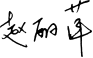 赵丽萍